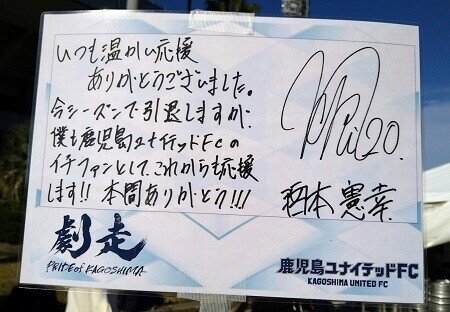 いつも温かい応援
ありがとうございました。
今シーズンで引退しますが、
僕も鹿児島ユナイテッドFCの
イチファンとして、これからも応援
します!! 本間ありがとう!!!
20.
酒本 憲幸
劇走
PRIDE of KAGOSHIMA
鹿児島ユナイテッドFC
KAGOSHIMA UNITED FC